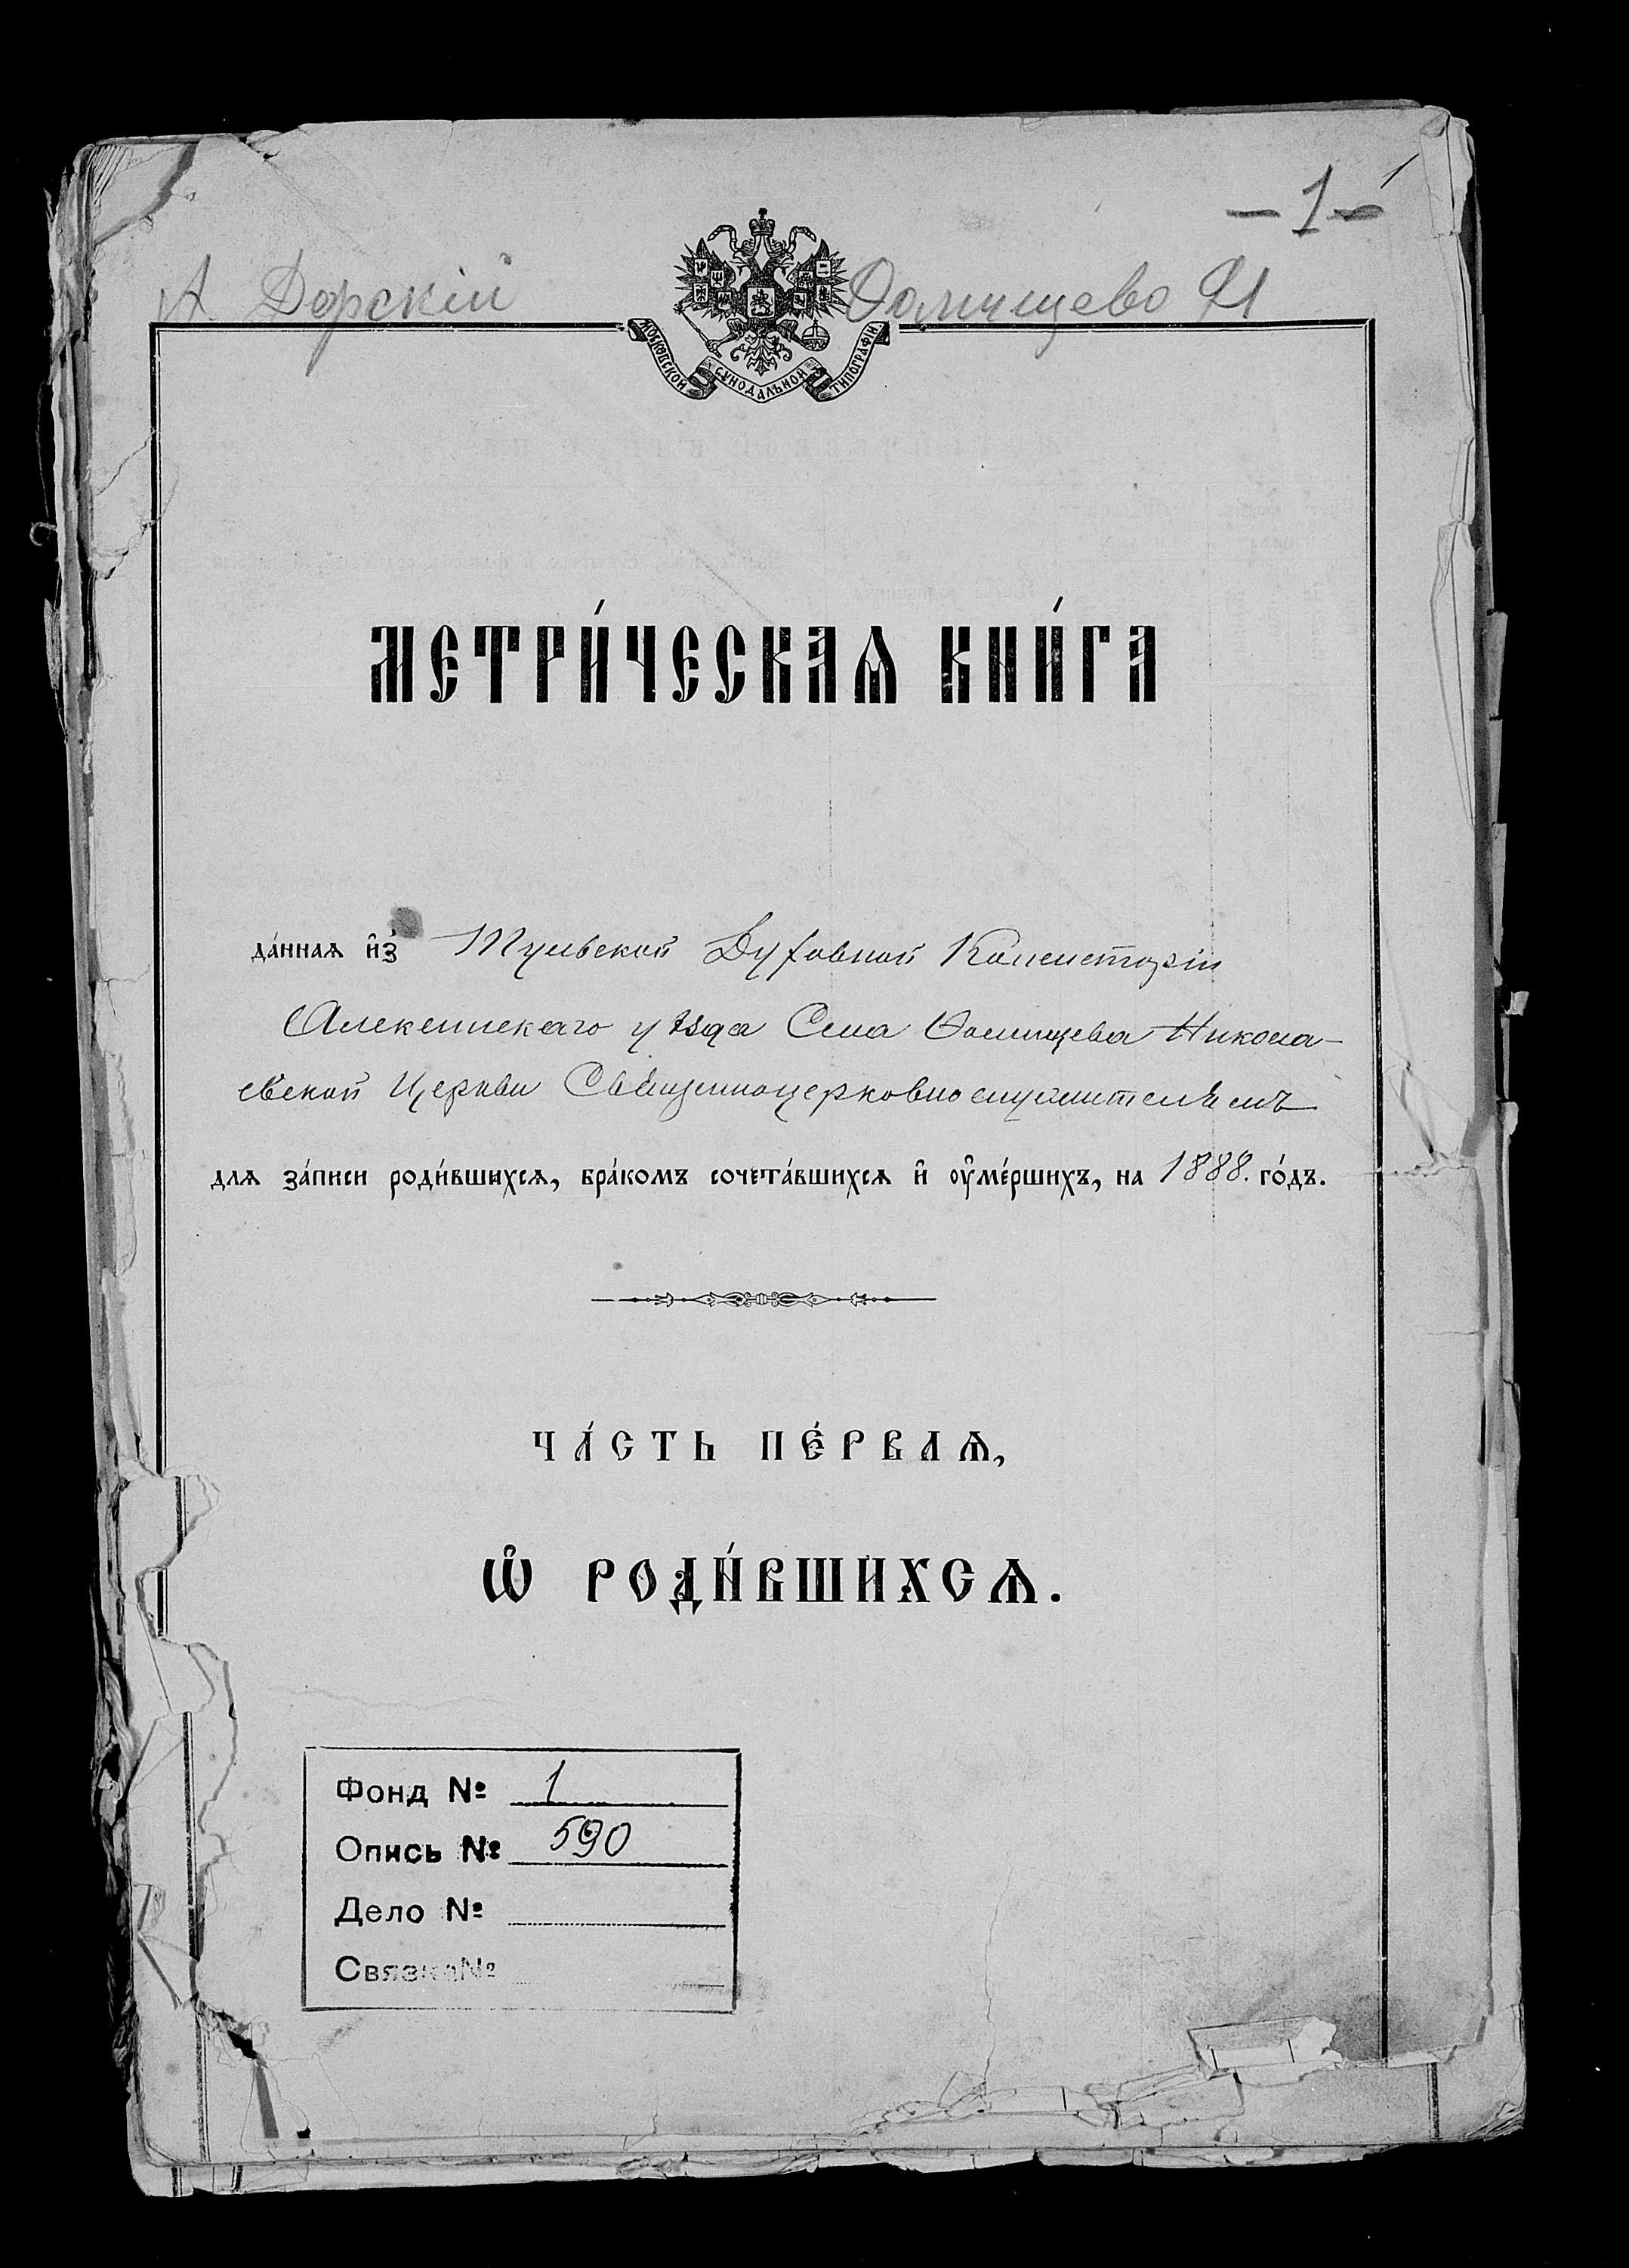 1
-1-
А Дорскій
Ѳомищево 91
МОСКОВСКОЙ СѴНОДАЛЬНОЙ ТИПОГРАФІИ
МЕТРИ́ЧЕСКАѦ КНИ́ГА
да́ннаѧ и҆з̾ Тульской Духовной Консисторіи
Алексинскаго уѣзда Села Ѳомищева Никола-
евской Церкви Священноцерковнослужителямъ
длѧ за́писи роди́вшихсѧ, бра́комъ сочета́вшихсѧ и҆ ᲂу҆ме́ршихъ, на 1888. го́дъ.
ЧА́СТЬ ПЕ́РВАѦ,
Ѡ҆ РОДИ́ВШИХСѦ.
Фонд № 1
Опись № 590
Дело №
Связка №